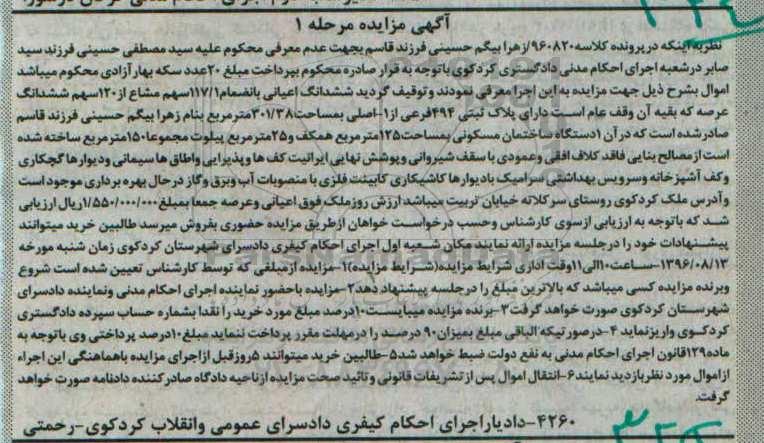 آگهی مزایده مرحله ۱
نظربه اینکه درپرونده کلاسه۹۶۰۸۲۰/زهرا بیگم حسینی فرزند قاسم بجهت عدم معرفی محکوم علیه سید مصطفی حسینی فرزند سید
صابر درشعبه اجرای احکام مدنی دادگستری کردکوی باتوجه به قرار صادره محکوم بپرداخت مبلغ ۲۰عدد سکه بهارآزادی محکوم میباشد
اموال بشرح ذیل جهت مزایده به این اجرا معرفی نمودند وتوقیف گردید ششدانگ اعیانی بانضمام۱۱۷/۱سهم مشاع از۱۲۰سهم ششدانگ
عرصه که بقیه آن وقف عام است دارای پلاک ثبتی ۴۹۴فرعی از۱-اصلی بمساحت۳۰۱/۳۸مترمربع بنام زهرا بیگم حسینی فرزند قاسم
صادرشده است که درآن ۱دستگاه ساختمان مسکونی بمساحت۱۲۵مترمربع همکف و۲۵مترمربع پیلوت مجموعا۱۵۰مترمربع ساخته شده
است ازمصالح بنایی فاقد کلاف افقی وعمودی با سقف شیروانی وپوشش نهایی ایرانیت کف ها وپذیرایی واطاق ها سیمانی ودیوارها گچکاری
وکف آشپزخانه وسرویس بهداشتی سرامیک بادیوارها کاشیکاری کابینت فلزی با منصوبات آب وبرق وگاز درحال بهره برداری موجود است
وآدرس ملک کردکوی روستای سرکلاته خیابان تربیت میباشد ارزش روزملک فوق اعیانی وعرصه جمعا بمبلغ۱/۵۵۰/۰۰۰/۰۰۰ریال ارزیابی
شد که باتوجه به ارزیابی ازسوی کارشناس وحسب درخواست خواهان ازطریق مزایده حضوری بفروش میرسد طالبین خرید میتوانند
پیشنهادات خود را درجلسه مزایده ارائه نمایند مکان شعبه اول اجرای احکام کیفری دادسرای شهرستان کردکوی زمان شنبه مورخه
۱۳۹۶/۰۸/۱۳-ساعت۱۰الی۱۱وقت اداری شرایط مزایده(شرایط مزایده)۱-مزایده ازمبلغی که توسط کارشناس تعیین شده است شروع
وبرنده مزایده کسی میباشد که بالاترین مبلغ را درجلسه پیشنهاد دهد۲-مزایده باحضور نماینده اجرای احکام مدنی ونماینده دادسرای
شهرستان کردکوی صورت خواهد گرفت۳-برنده مزایده میبایست۱۰درصد مبلغ مورد خرید را نقدا بشماره حساب سپرده دادگستری
کردکوی واریزنماید ۴-درصورتیکه الباقی مبلغ بمیزان۹۰ درصد را درمهلت مقرر پرداخت ننماید مبلغ۱۰درصد پرداختی وی باتوجه به
ماده۱۲۹قانون اجرای احکام مدنی به نفع دولت ضبط خواهد شد۵-طالبین خرید میتوانند ۵روزقبل ازاجرای مزایده باهماهنگی این اجراء
ازاموال مورد نظربازدید نمایند۶-انتقال اموال پس ازتشریفات قانونی وتائید صحت مزایده ازناحیه دادگاه صادرکننده دادنامه صورت خواهد
گرفت.
۴۲۶۰-دادیاراجرای احکام کیفری دادسرای عمومی وانقلاب کردکوی-رحمتی
ParsNamadData